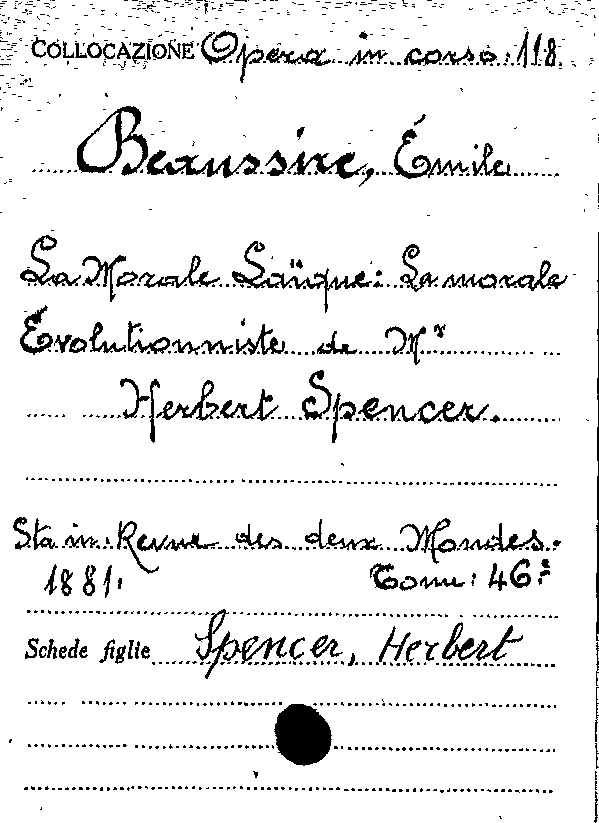 COLLOCAZIONE Opera in corso. 118
Beaussire, Émile
La Morale Laïque: La morale
Évolutionniste de Mr
Herbert Spencer.
Sta in: Revue des deux Mondes.
1881. Tome: 46º
Schede figlie Spencer, Herbert